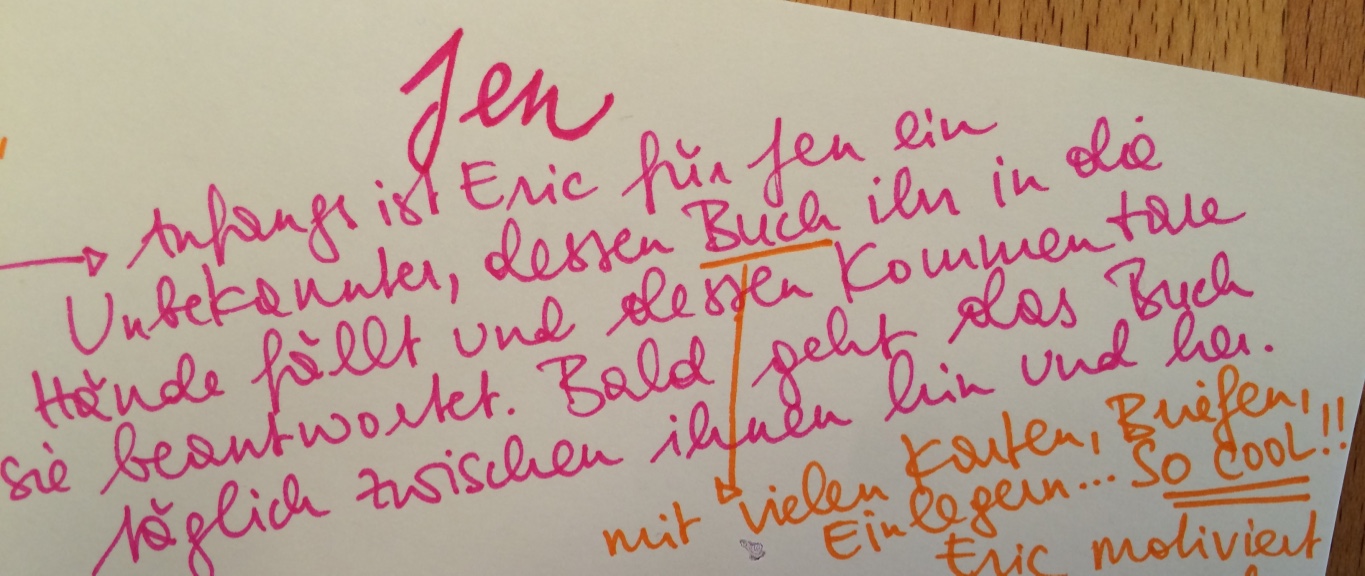 Jen
Anfangs ist Eric für Jen ein
Unbekannter, dessen Buch ihr in die
Hände fällt und dessen Kommentare
sie beantwortet. Bald geht das Buch
täglich zwischen ihnen hin und her.
mit vielen Karten, Briefen,
Einlegern... SO COOL!!
Eric motiviert